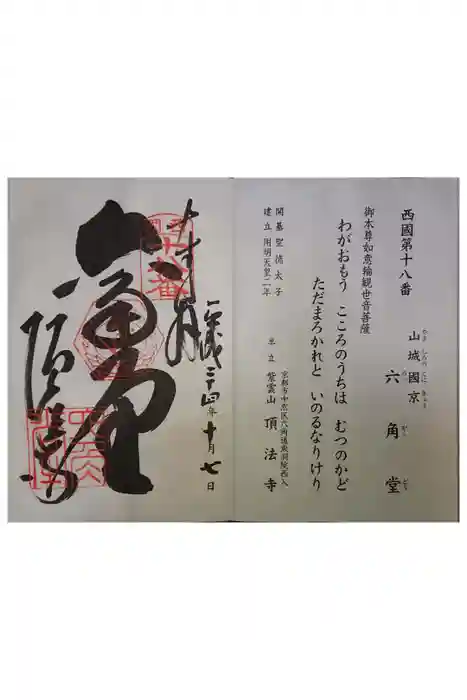 西國第十八番
山城國京 六角堂
やましろのくにきょう ろっかくどう
御本尊如意輪観世音菩薩
わがおもう こころのうちは むつのかど
ただまろかれと いのるなりけり
開基 聖徳太子
建立 用明天皇二年
京都市中京区六角通東洞院西入
紫雲山 頂法寺
奉拝
平成二十四年十月七日
六角堂
頂法寺